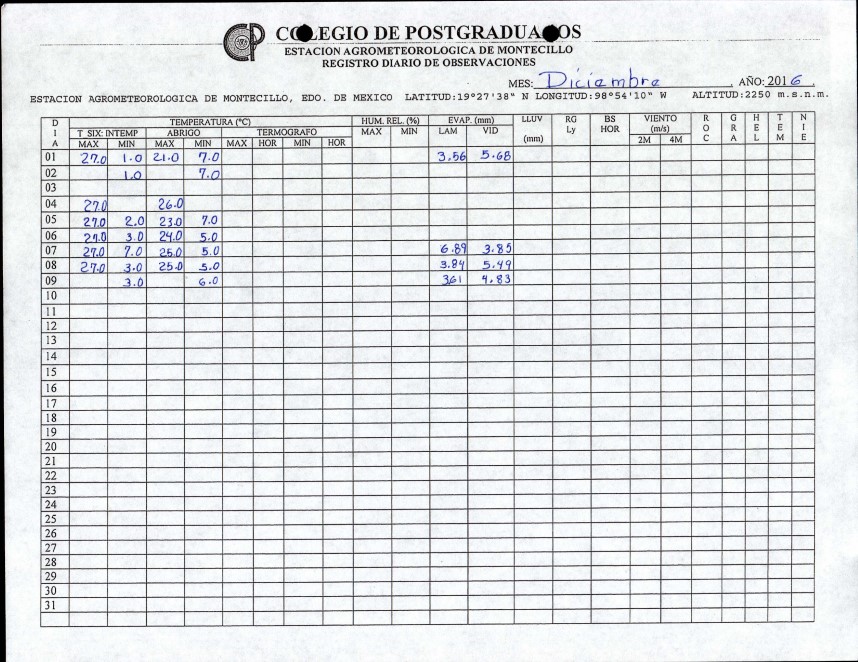 CP COLEGIO DE POSTGRADUADOS
ESTACION AGROMETEOROLOGICA DE MONTECILLO
REGISTRO DIARIO DE OBSERVACIONES
MES: Diciembre, AÑO: 2016.
ESTACION AGROMETEOROLOGICA DE MONTECILLO, EDO. DE MEXICO LATITUD:19°27'38" N LONGITUD:98°54'10" W ALTITUD:2250 m.s.n.m.
DIA TEMPERATURA (°C) HUM. REL. (%) EVAP. (mm) LLUV (mm) RG Ly BS HOR VIENTO (m/s) ROC GRA HEL TEM NIE
T SIX: INTEMP ABRIGO TERMOGRAFO MAX MIN LAM VID 2M 4M
MAX MIN MAX MIN MAX HOR MIN HOR
01 27.0 1.0 21.0 7.0 3.56 5.68
02 1.0 7.0
03
04 27.0 26.0
05 27.0 2.0 23.0 7.0
06 27.0 3.0 24.0 5.0
07 27.0 7.0 25.0 5.0 6.89 3.85
08 27.0 3.0 25.0 5.0 3.84 5.49
09 3.0 6.0 361 4.83
10
11
12
13
14
15
16
17
18
19
20
21
22
23
24
25
26
27
28
29
30
31